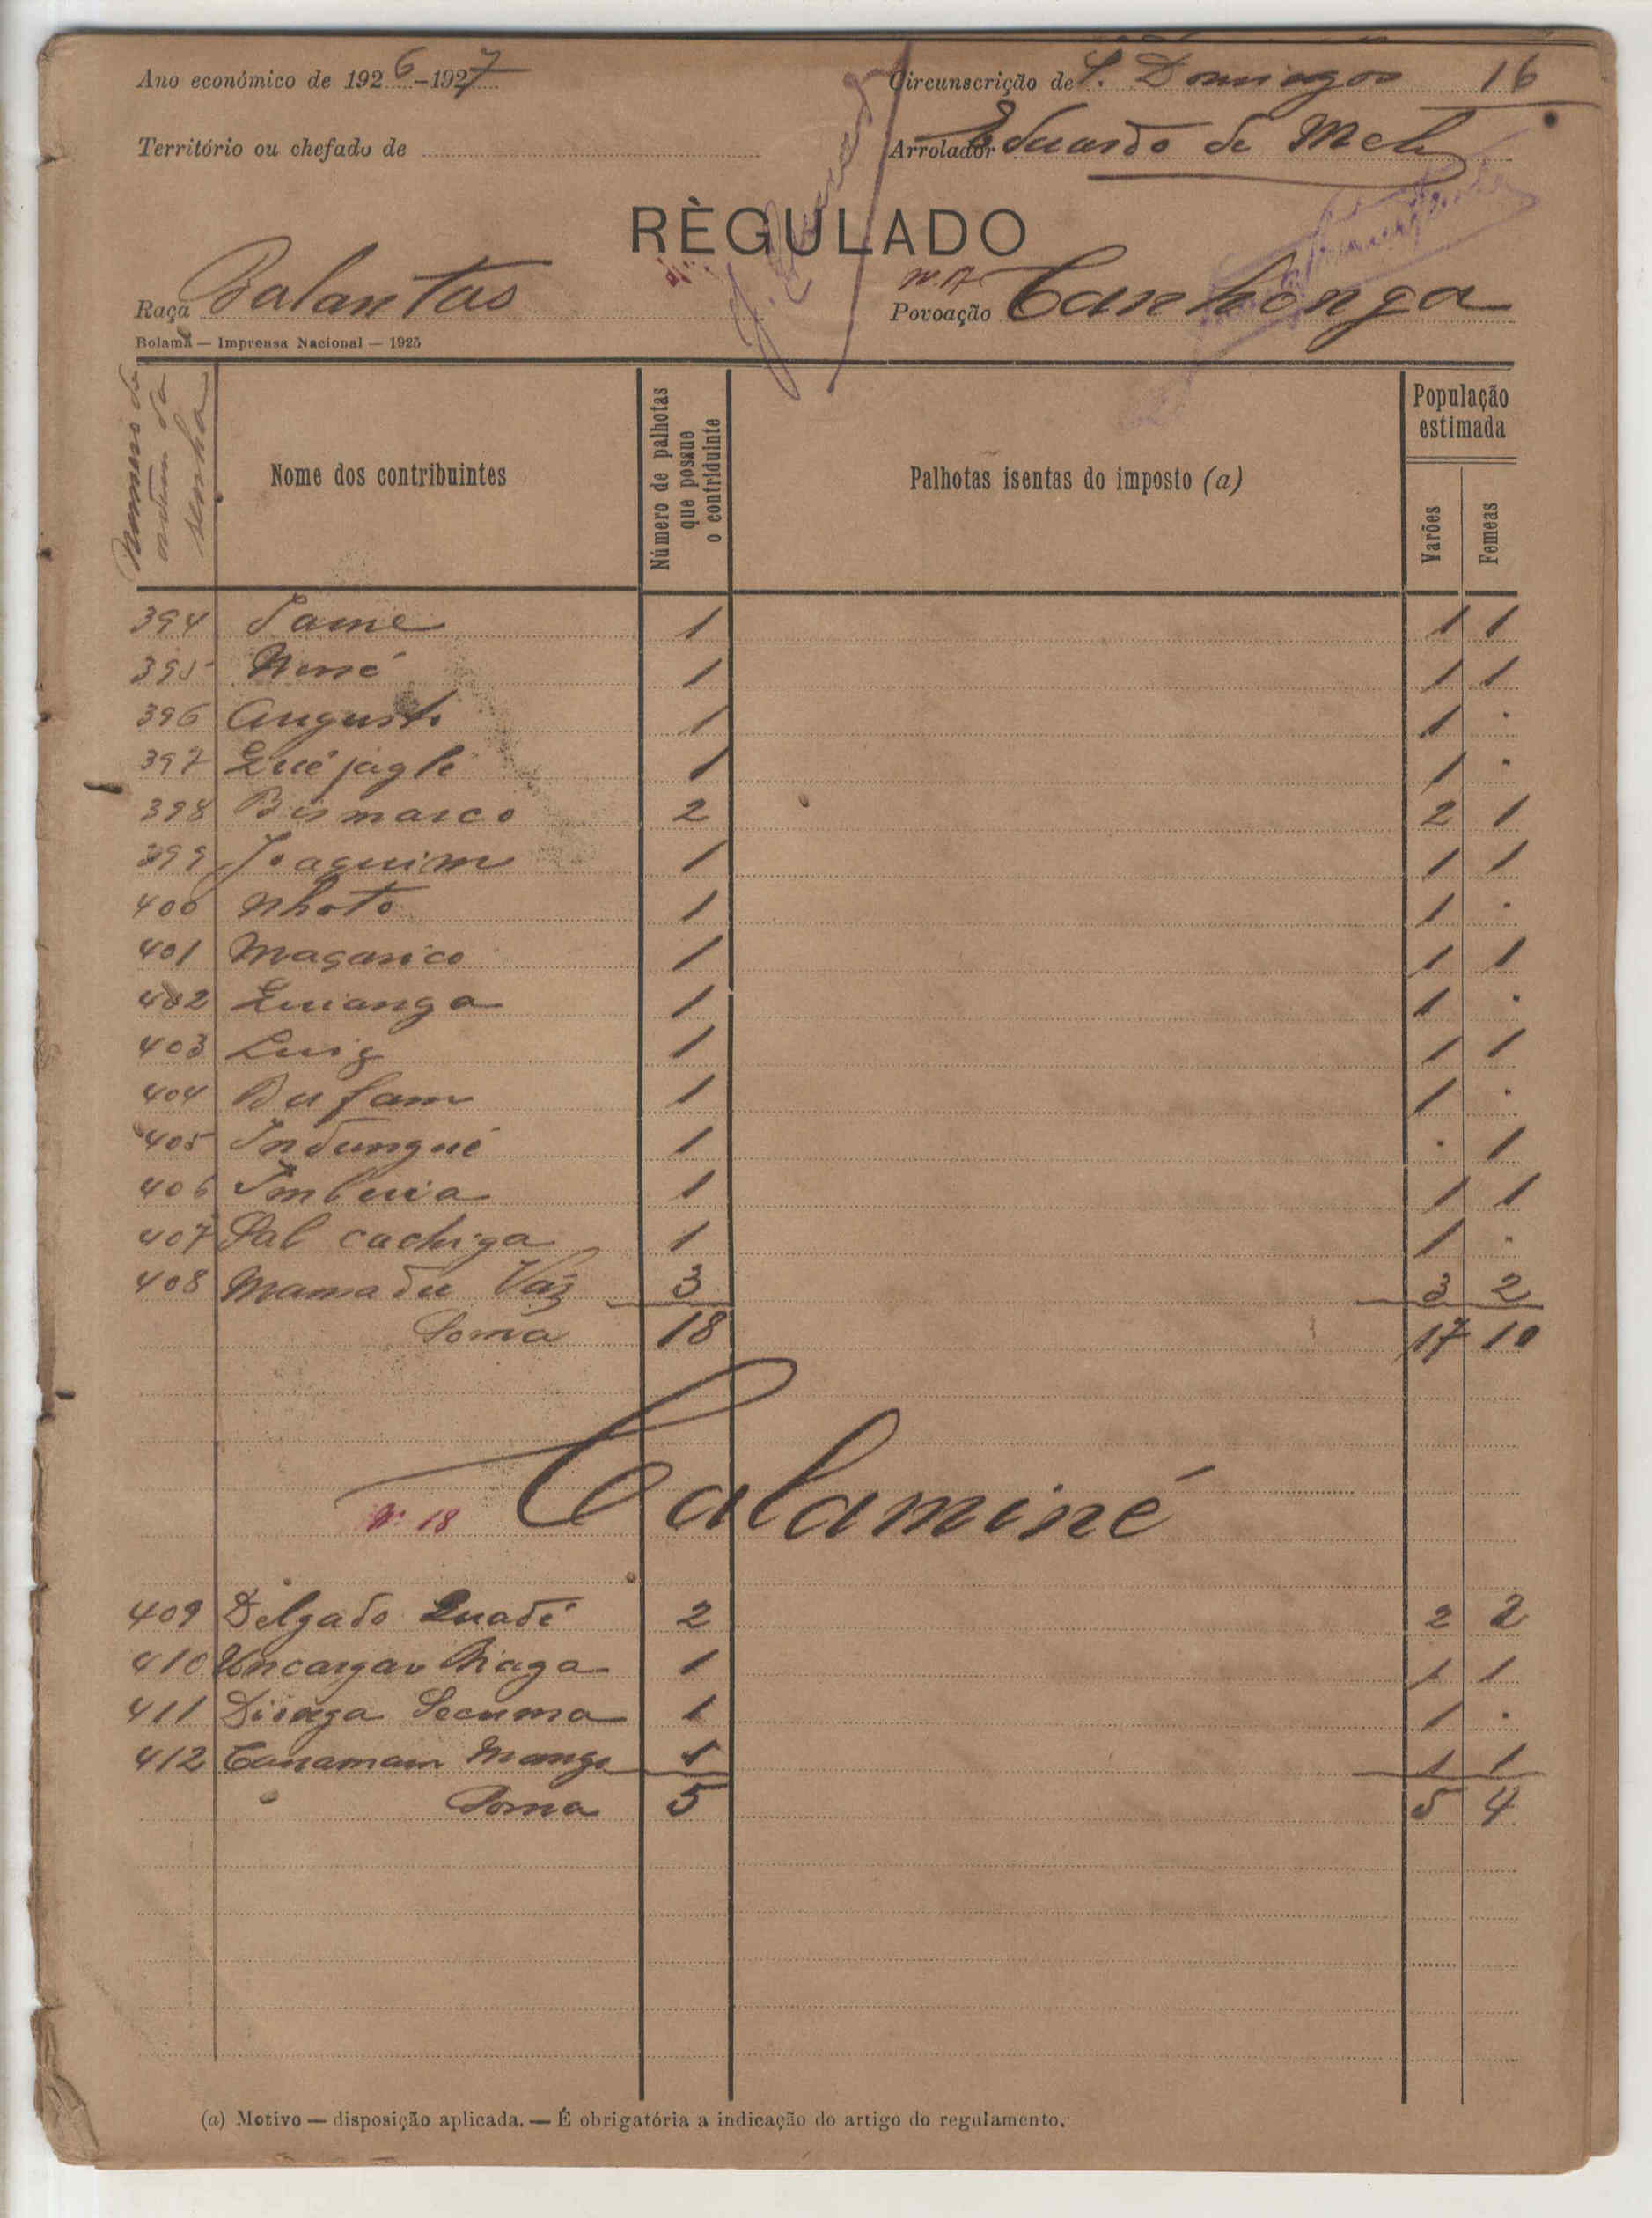 Ano económico de 1926-1927 Circunscrição de S. Domingos 16
Território ou chefado de Arrolador Eduardo de Melo
RÈGULADO
Raça Balantas Nº 17 Povoação Canhonga
Bolama — Imprensa Nacional — 1925
Numero de ordem da senha
Nome dos contribuintes
Número de palhotas que possue o contriduinte
Palhotas isentas do imposto (a)
População estimada
Varões
Femeas
394 Same 1 1 1
395 1 1 1
396 Augusto 1 1 .
397 Quéjagle 1 1 .
398 Bismarco 2 2 1
399 Joaquim 1 1 1
400 Nhoto 1 1 .
401 Maçarico 1 1 1
402 Quianga 1 1 .
403 Luiz 1 1 1
404 Bufam 1 1 .
405 Indungué 1 . 1
406 1 1 1
407 cachiga 1 1 .
408 Mamadu Váz 3 3 2
Soma 18 17 10
Nº 18 Calaminé
409 Delgado Quadé 2 2 2
410 Biaga 1 1 1
411 Secuma 1 1 .
412 1 1 1
Soma 5 5 4
(a) Motivo — disposição aplicada. — É obrigatória a indicação do artigo do regulamento.